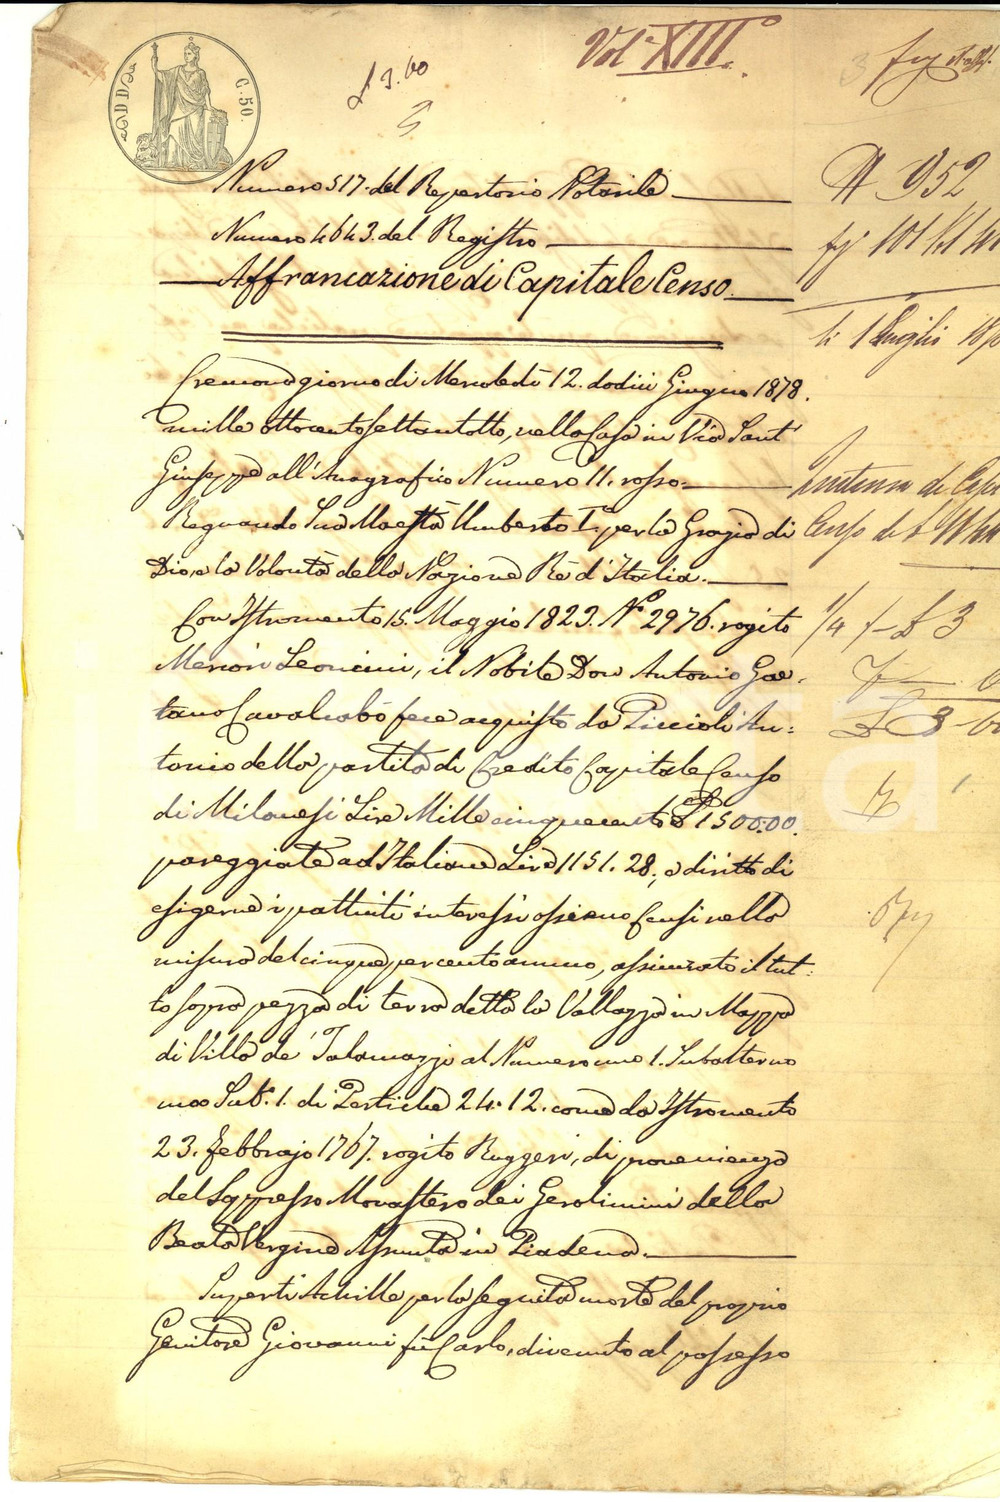 Vol. XIII°
£ 3.60
C. 50.
Numero 517. del Repertorio Notarile
A 952
Numero 4643. del Registro
Affrancazione di Capitale Censo
li 1 Luglio
Cremona giorno di Mercoledì 12. dodici Giugno 1878.
mille ottocento settantotto, nella Casa in Via Sant'
Giuseppe all'Anagrafico Numero 11. rosso.
Regnando Sua Maestà Umberto I° per la Grazia di
Dio, e la Volontà della Nazione Rè d'Italia.
Con Istromento 15. Maggio 1823. N° 2976. rogito
Leoncini, il Nobile Don Antonio Gae-
tano Cavalcabò fece acquisto da Piccioli An:
tonio della partita di Credito Capitale Censo
di Milanesi Lire Mille cinquecento £ 1500.00.
pareggiate ad Italiane Lire 1151.28., e diritto di
esigerne i pattuiti interessi ossieno Censi nella
misura del cinque per cento annuo, assicurato il tut:
to sopra pezza di terra detta la Vallazza in Mappa
di Villa de' Talamazzi al Numero uno 1. Subalterno
uno Sub. 1. di Pertiche 24.12. come da Istromento
23. Febbrajo 1767. rogito Ruggeri, di provenienza
del Soppresso Monastero dei Gerolimini della
Beata Vergine Assunta in Piadena.
Superti Achille per la seguita morte del proprio
Genitore Giovanni fù Carlo, divenuto al possesso